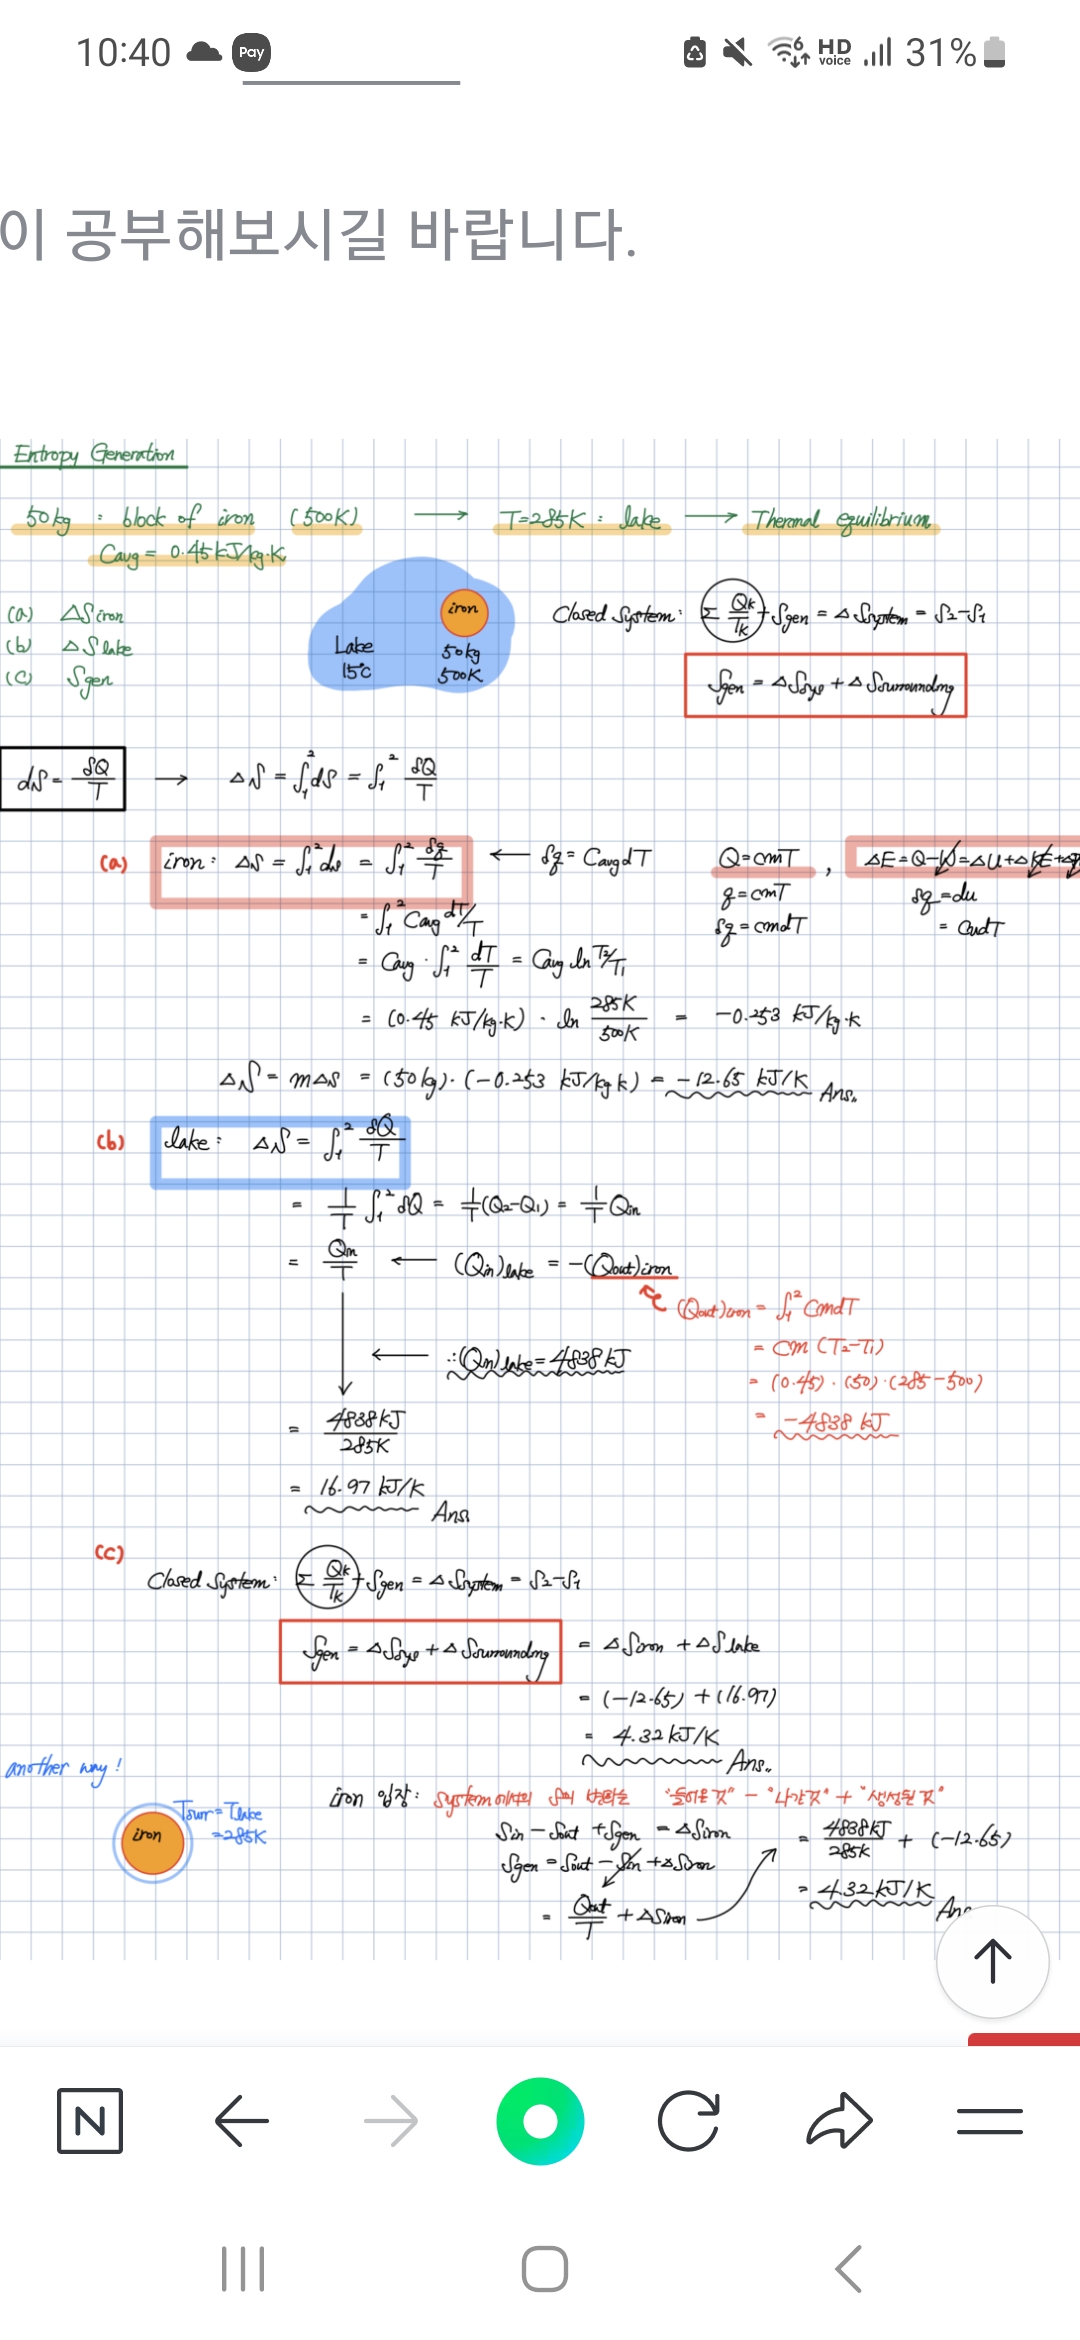 10:40 Pay HD voice 31%
이 공부해보시길 바랍니다.
Entropy Generation
50kg : block of iron (500K) → T=285K : lake → Thermal equilibrium
Cavg = 0.45 kJ/kg·K
(a) ΔSiron
(b) ΔSlake
(c) Sgen
iron
Lake 50kg
15℃ 500K
Closed System: Σ Qk/Tk + Sgen = ΔSsystem = S2-S1
Sgen = ΔSsys + ΔSsurrounding
dS = δQ/T → ΔS = ∫₁² dS = ∫₁² δQ/T
(a) iron: Δs = ∫₁² ds = ∫₁² δq/T ← δq = Cavg dT Q=cmT , ΔE=Q-W=ΔU+ΔKE+ΔP
q=cmT δq=du
= ∫₁² Cavg dT/T δq=cmdT = CvdT
= Cavg · ∫₁² dT/T = Cavg ln T2/T1
= (0.45 kJ/kg·K) · ln 285K/500K = -0.253 kJ/kg·K
ΔS = mΔs = (50kg)·(-0.253 kJ/kg k) = -12.65 kJ/K Ans.
(b) lake: ΔS = ∫₁² δQ/T
= 1/T ∫₁² δQ = 1/T (Q2-Q1) = 1/T Qin
= Qin/T ← (Qin)lake = -(Qout)iron
(Qout)iron = ∫₁² CmdT
= Cm (T2-T1)
← ∴(Qin)lake = 4838 kJ
= (0.45)·(50)·(285-500)
= 4838kJ/285K
= -4838 kJ
= 16.97 kJ/K Ans
(c)
Closed System: Σ Qk/Tk + Sgen = ΔSsystem = S2-S1
Sgen = ΔSsys + ΔSsurrounding = ΔSiron + ΔSlake
= (-12.65) + (16.97)
= 4.32 kJ/K Ans.
another way!
iron 입장: system에서의 S의 변화는 "들어온 것" - "나간것" + "생성된 것"
Tsurr=Tlake
=285K
iron
Sin - Sout + Sgen = ΔSiron
Sgen = Sout - Sin + ΔSiron
= Qout/T + ΔSiron
= 4838kJ/285K + (-12.65)
= 4.32 kJ/K Ans
N